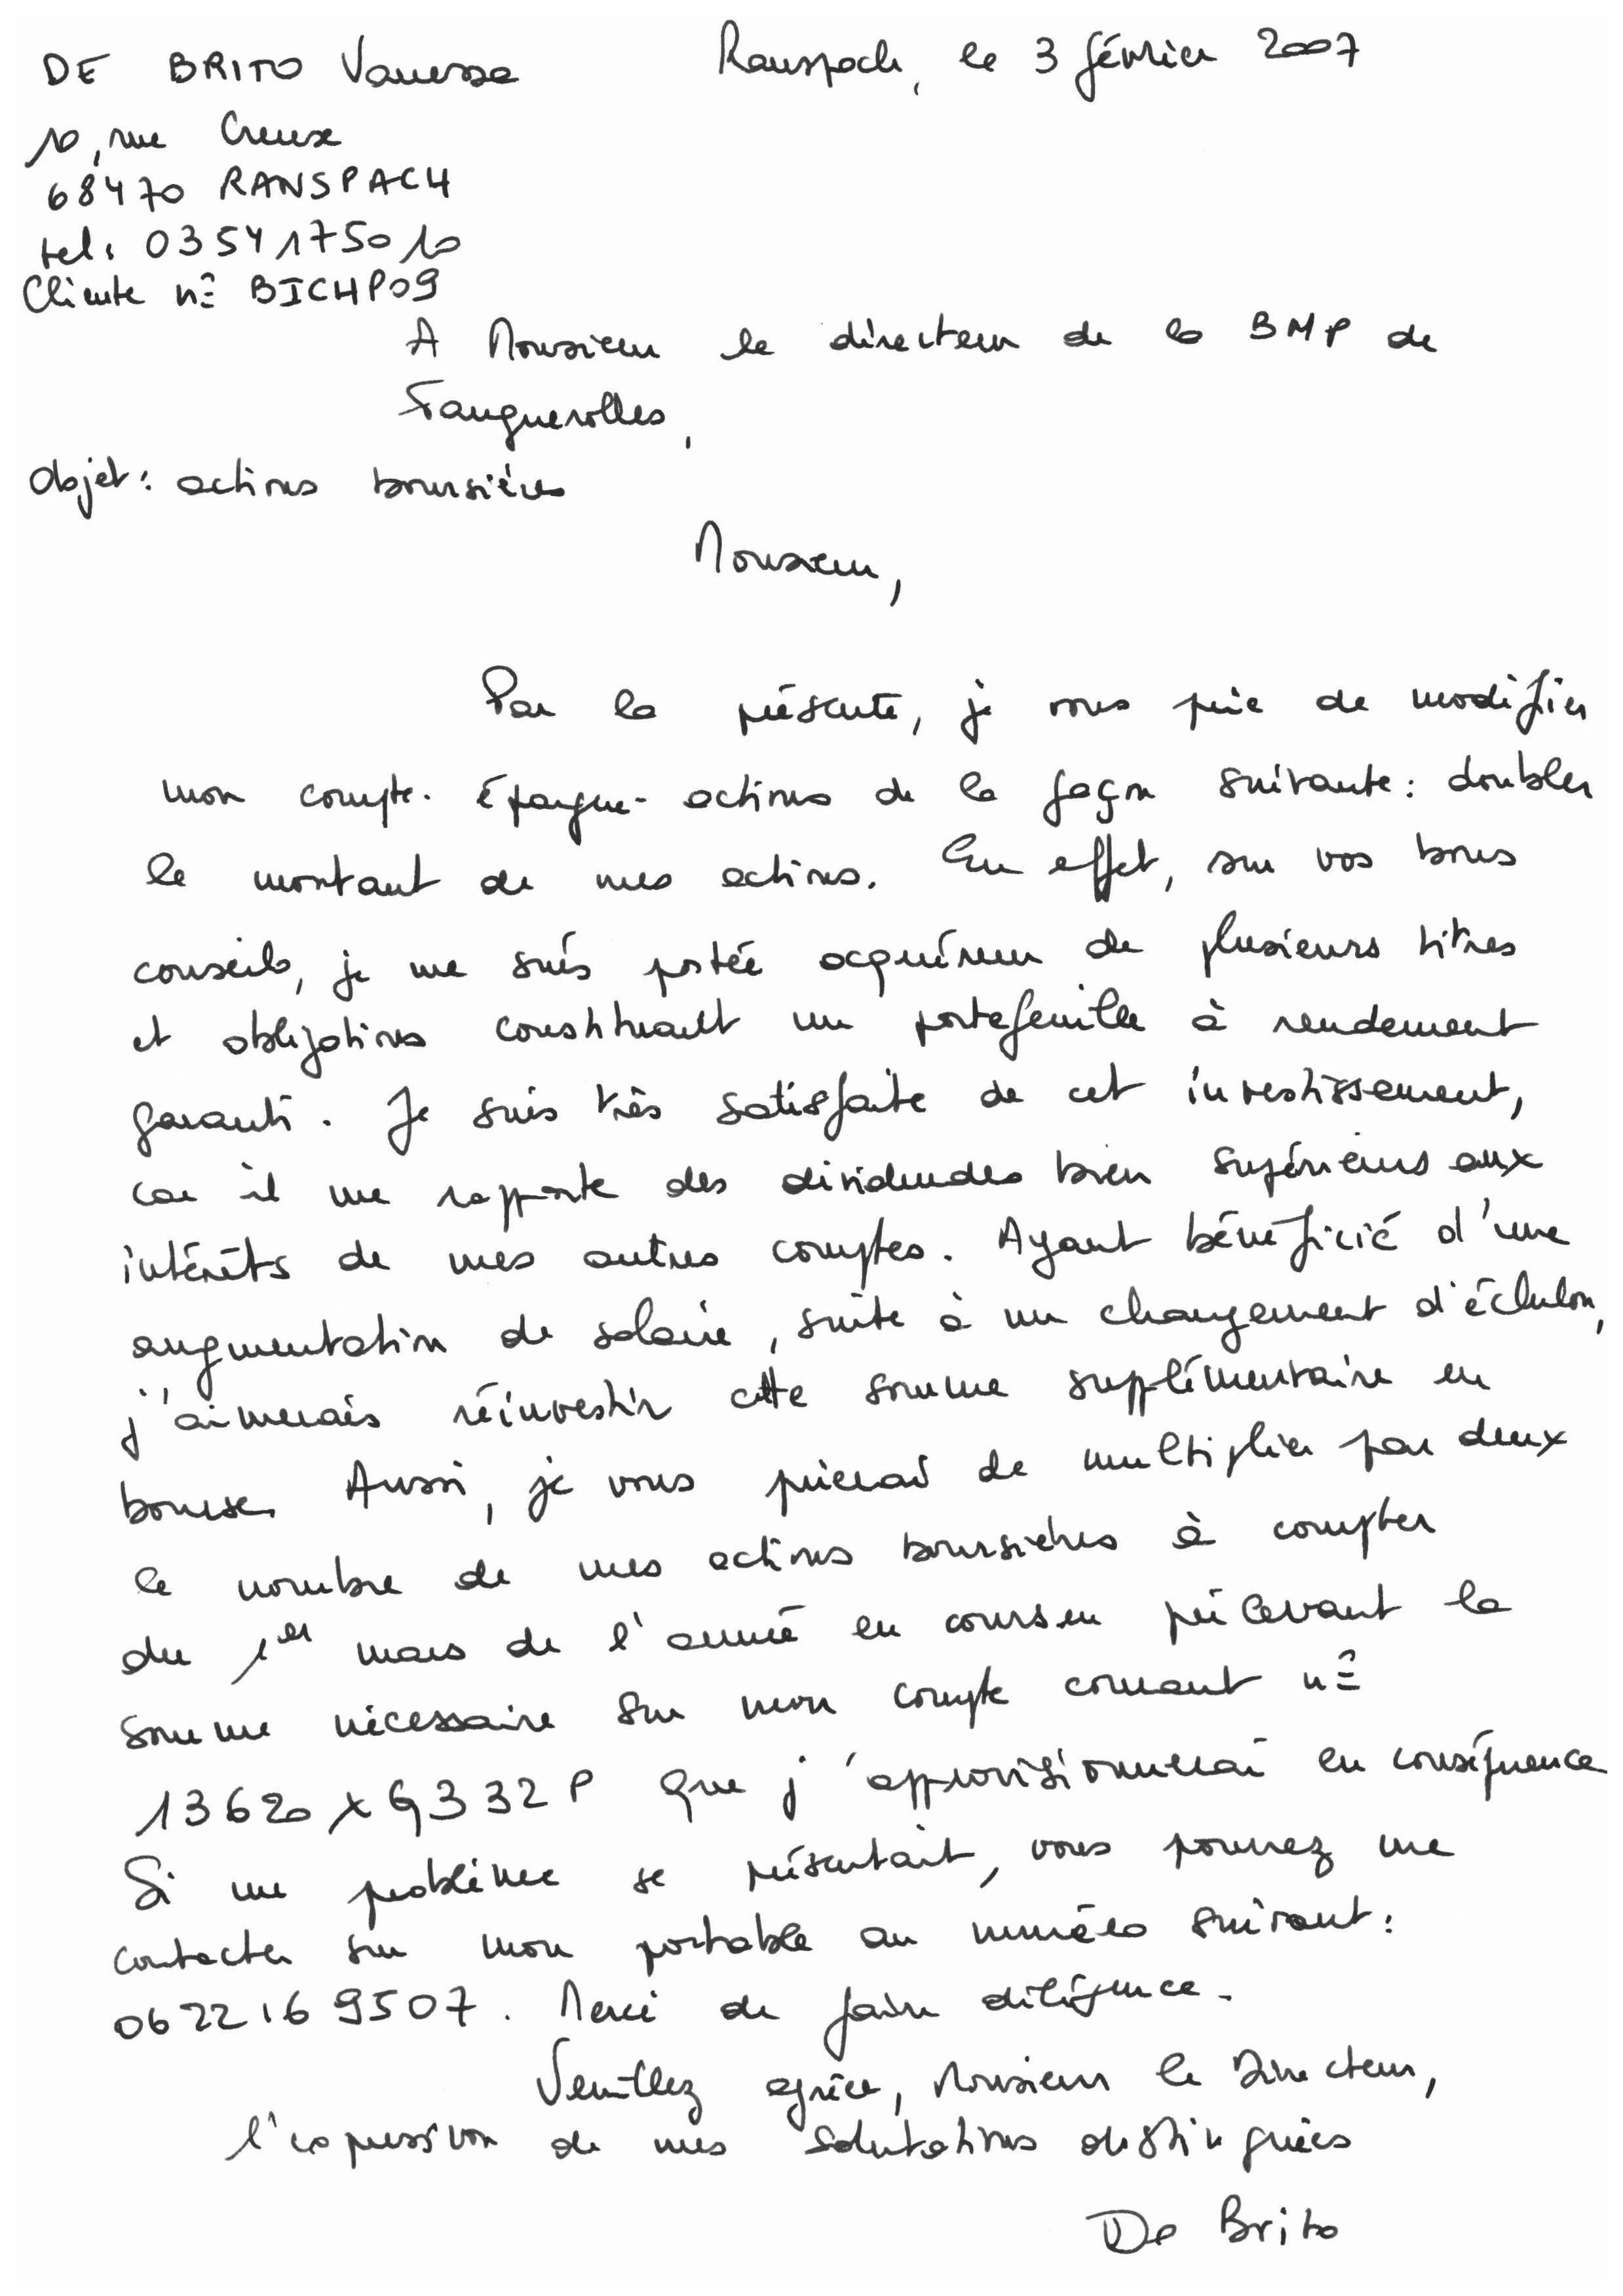 DE BRITO Vanessa
Ranspach, le 3 février 2007
10, rue Creuse
68470 RANSPACH
tel: 0354175010
Cliente n° BICHP09
A Monsieur le directeur de la BMP de
Fauguerolles,
Objet: actions boursières
Monsieur,
Par la présente, je vous prie de modifier
mon compte-épargne-actions de la façon suivante: doubler
le montant de mes actions. En effet, sur vos bons
conseils, je me suis portée acquéreur de plusieurs titres
et obligations constituant un portefeuille à rendement
garanti. Je suis très satisfaite de cet investissement,
car il me rapporte des dividendes bien supérieurs aux
intérêts de mes autres comptes. Ayant bénéficié d'une
augmentation de salaire, suite à un changement d'échelon,
j'aimerais réinvestir cette somme supplémentaire en
bourse. Aussi, je vous prierai de multiplier par deux
le nombre de mes actions boursières à compter
du 1er mars de l'année en cours en prélevant la
somme nécessaire sur mon compte courant n°
13620XG332P que j'approvisionnerai en conséquence
Si un problème se présentait, vous pourrez me
contacter sur mon portable au numéro suivant:
0622169507. Merci de faire diligence.
Veuillez agréer, Monsieur le Directeur,
l'expression de mes salutations distinguées
De Brito